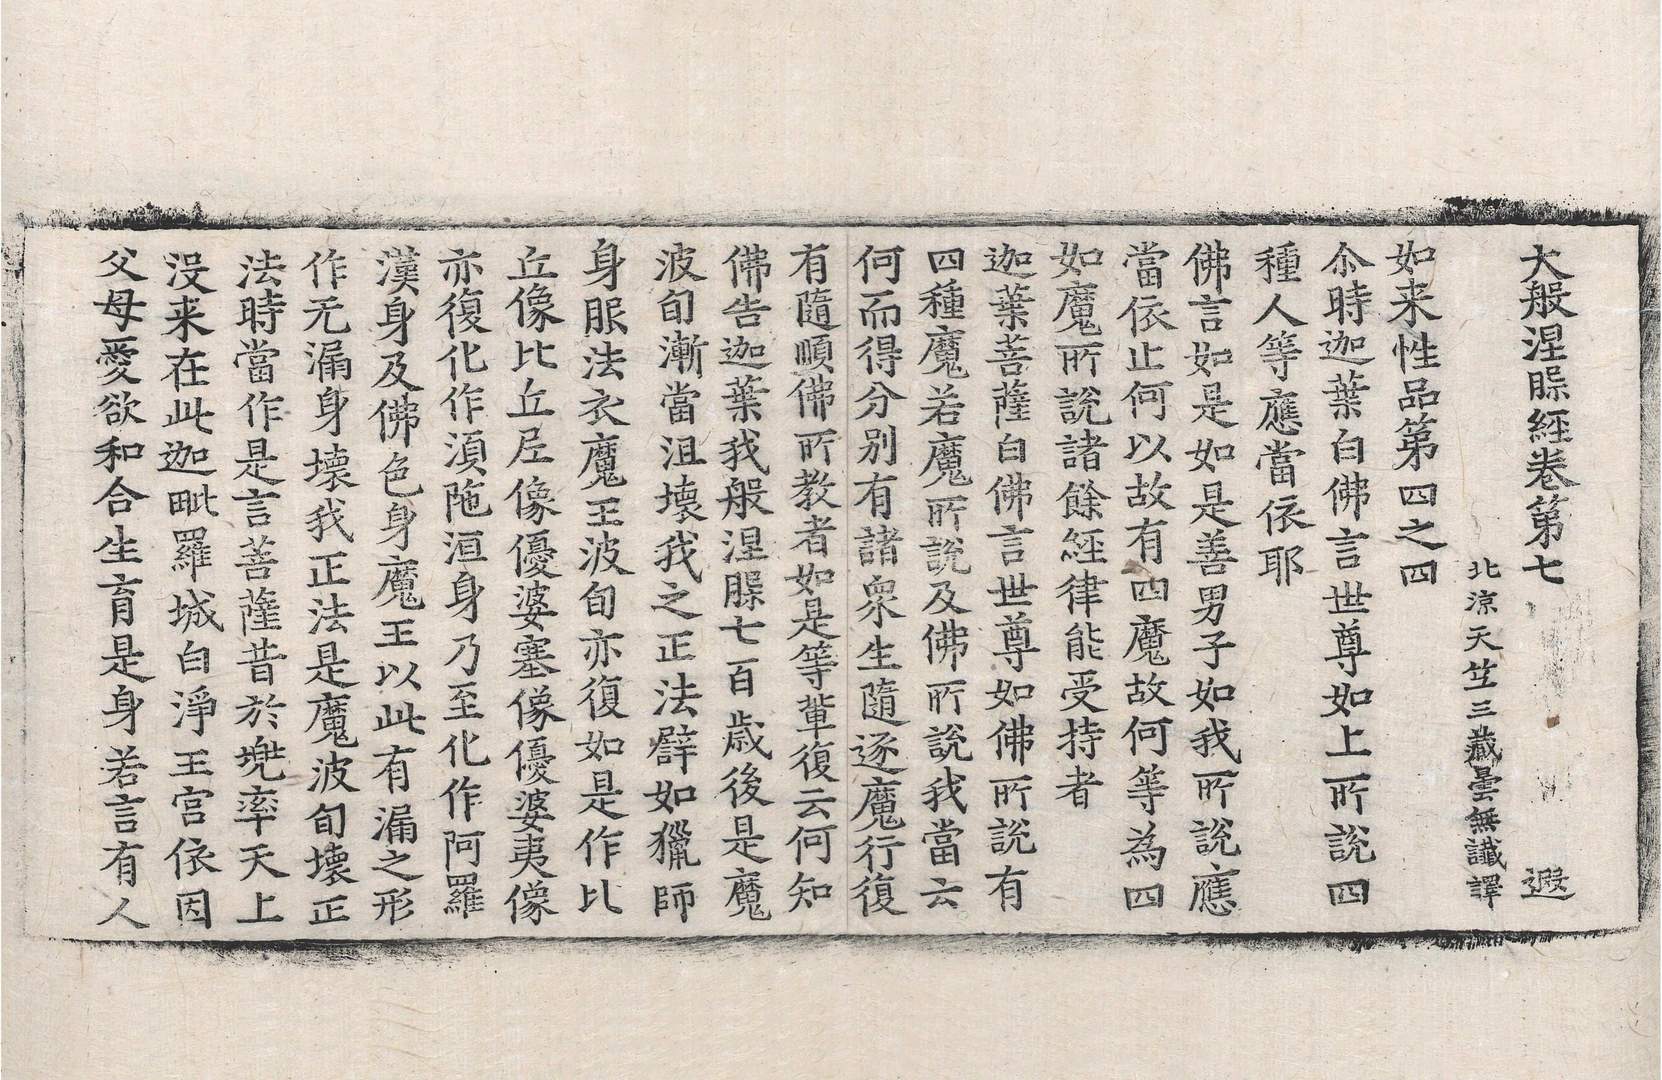 大般涅槃經卷第七　遐
北涼天竺三藏曇無讖譯
如来性品第四之四
尒時迦葉白佛言世尊如上所說四
種人等應當依耶
佛言如是如是善男子如我所說應
當依止何以故有四魔故何等為四
如魔所說諸餘經律能受持者
迦葉菩薩白佛言世尊如佛所說有
四種魔若魔所說及佛所說我當云
何而得分別有諸衆生隨逐魔行復
有隨順佛所教者如是等輩復云何知
佛告迦葉我般涅槃七百歲後是魔
波旬漸當沮壞我之正法譬如獵師
身服法衣魔王波旬亦復如是作比
丘像比丘尼像優婆塞像優婆夷像
亦復化作湏陁洹身乃至化作阿羅
漢身及佛色身魔王以此有漏之形
作无漏身壞我正法是魔波旬壞正
法時當作是言菩薩昔於兜率天上
没来在此迦毗羅城白淨王宫依因
父母愛欲和合生育是身若言有人